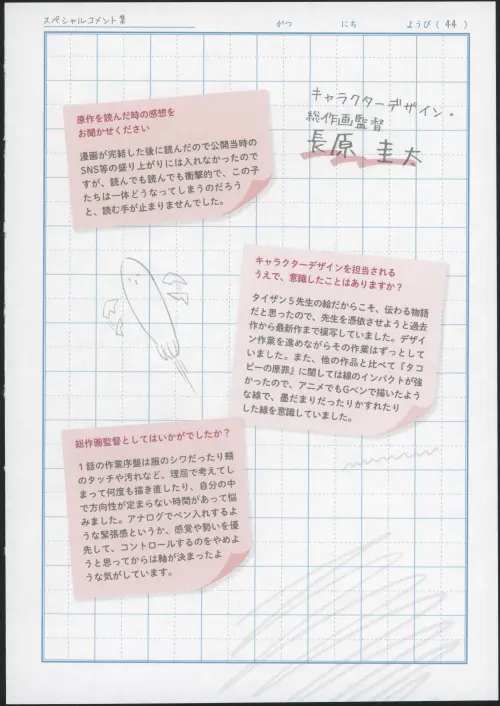 スペシャルコメント集
がつ にち ようび ( 44 )
キャラクターデザイン・
総作画監督
長原 圭太
原作を読んだ時の感想を
お聞かせください
漫画が完結した後に読んだので公開当時の
SNS等の盛り上がりには入れなかったので
すが、読んでも読んでも衝撃的で、この子
たちは一体どうなってしまうのだろう
と、読む手が止まりませんでした。
キャラクターデザインを担当される
うえで、意識したことはありますか？
タイザン５先生の絵だからこそ、伝わる物語
だと思ったので、先生を憑依させようと過去
作から最新作まで模写していました。デザイ
ン作業を進めながらその作業はずっとして
いました。また、他の作品と比べて『タコ
ピーの原罪』に関しては線のインパクトが強
かったので、アニメでもGペンで描いたよう
な線で、墨だまりだったりかすれたり
した線を意識していました。
総作画監督としてはいかがでしたか？
１話の作業序盤は服のシワだったり頬
のタッチや汚れなど、理屈で考えてし
まって何度も描き直したり、自分の中
で方向性が定まらない時間があって悩
みました。アナログでペン入れするよ
うな緊張感というか、感覚や勢いを優
先して、コントロールするのをやめよ
うと思ってからは軸が決まったよ
うな気がしています。